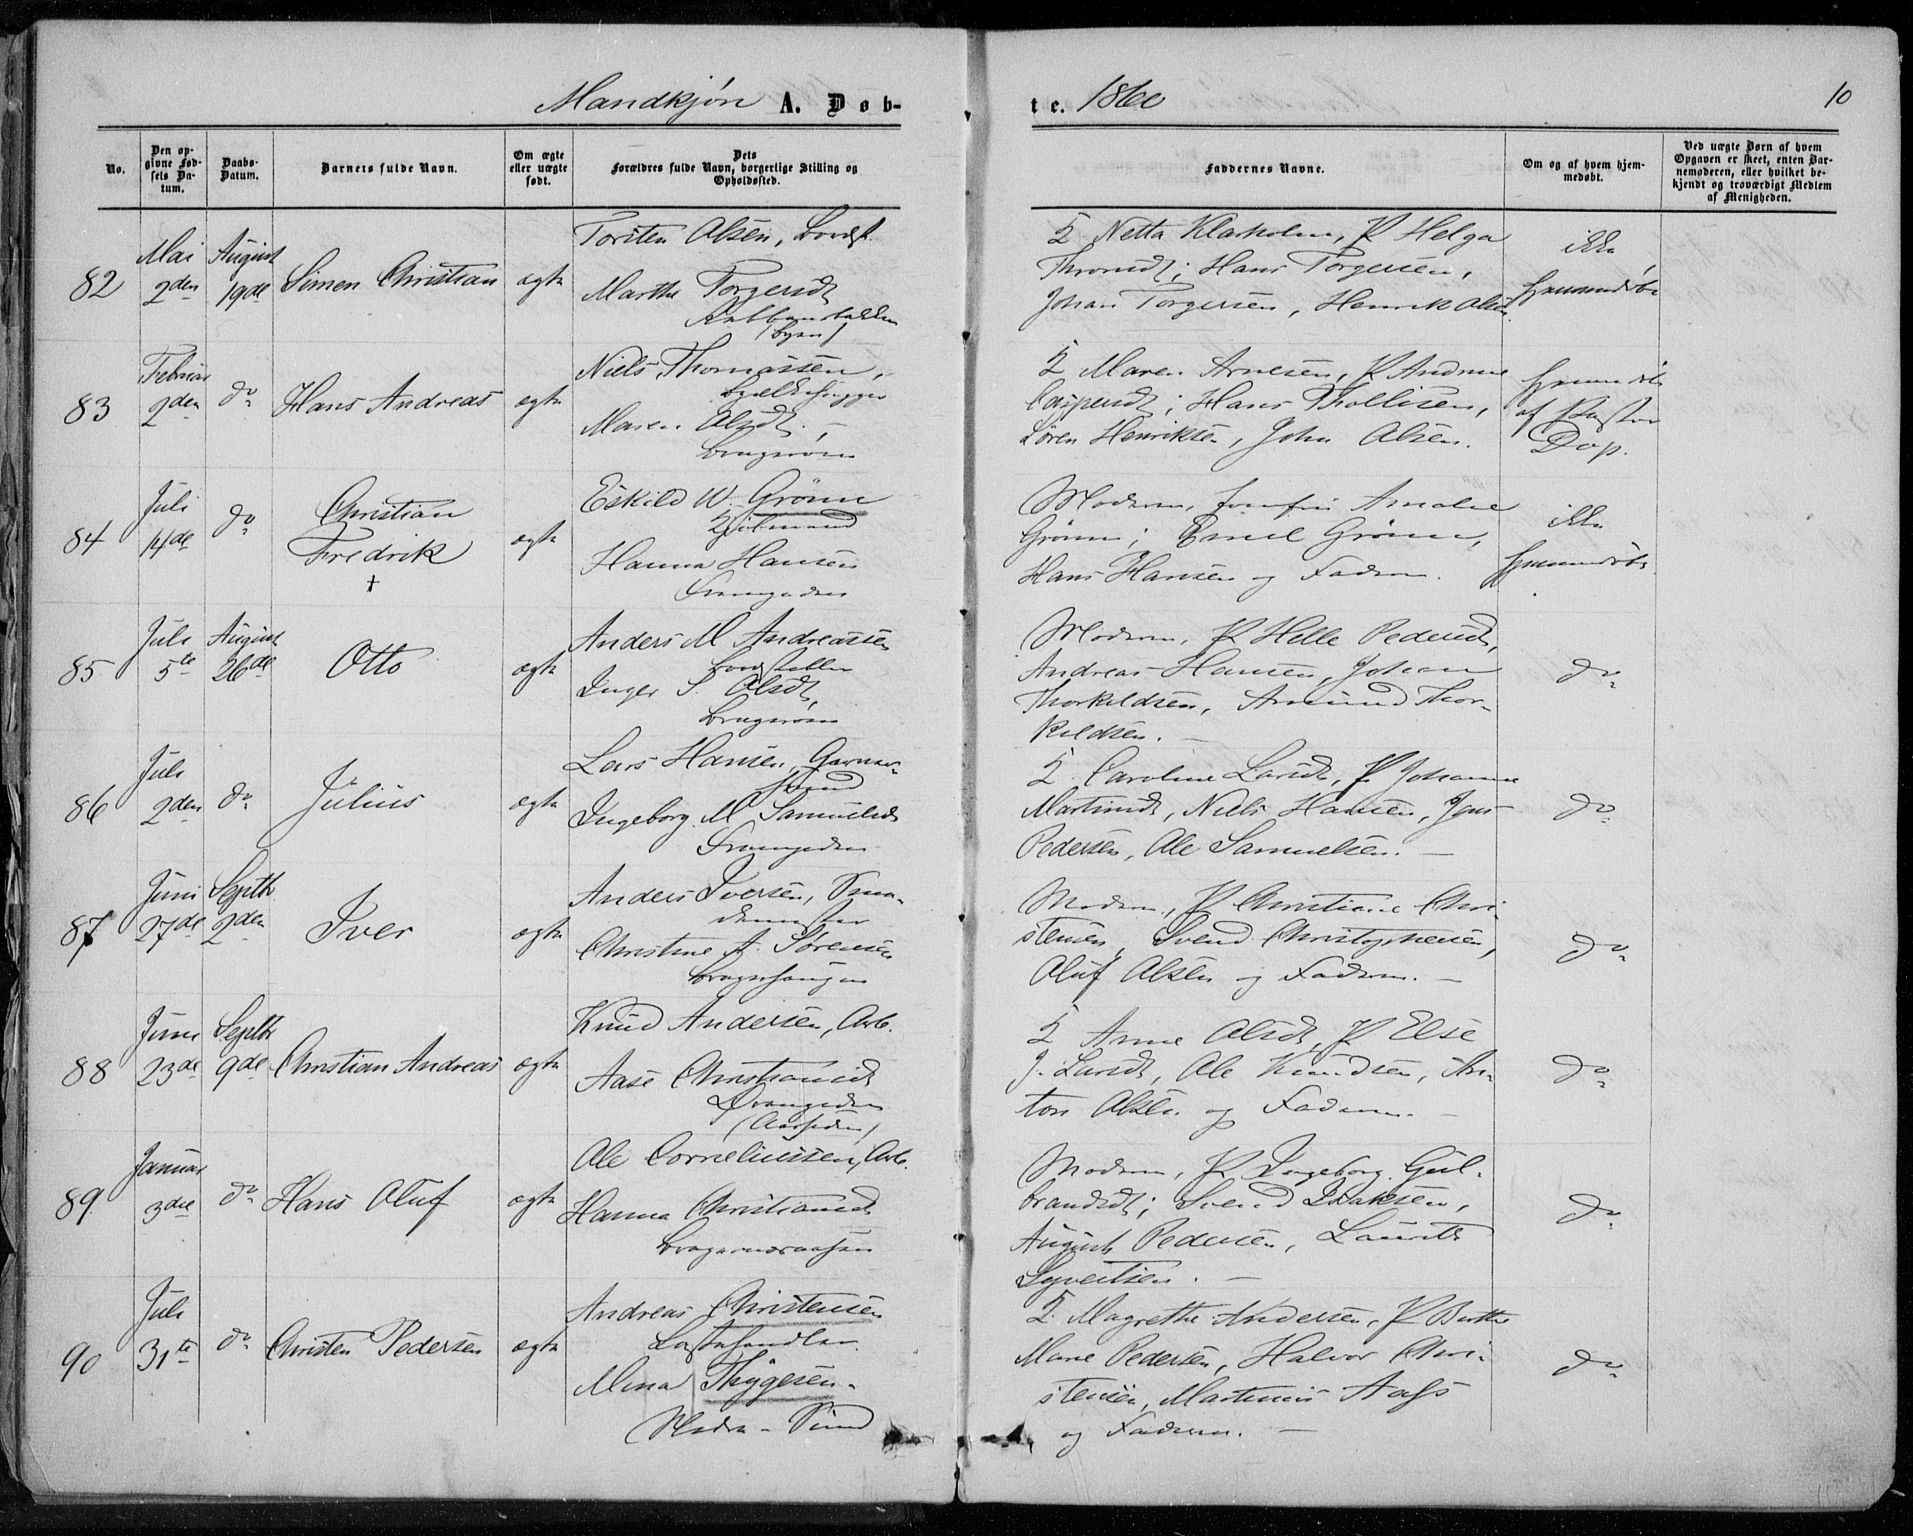 Mandkjøn A. Døb-
te. 1860
10
No.
Den op-
givne Fød-
sels Da-
tum.
Daabs-
Datum.
Barnets fulde Navn.
Om ægte
eller uægte
født.
Dets
Forældres fulde Navn, borgerlige Stilling og
Opholdssted.
Faddernes Navne.
Om og af hvem hjem-
medøbt.
Ved uægte Børn af hvem
Opgaven er skeet, enten Bar-
nemoderen, eller hvilket be-
kjendt og troværdigt Medlem
af Menigheden.
82
Mai
2den
August
19de
Simen Christian
ægte
Torsten Olsen,
Marthe Torgersdt
K Netta Klarholm, P Helga
Throndt; Hans Torgersen,
Johan Torgersen, Henrik Olsen
ikke
hjemmedøbt
83
Februar
2den
do
Hans Andreas
ægte
Niels Thomassen,
Maren Olsdt. -
Bragernæs
K Maren Arnesen, P Andrine
Caspersdt; Hans Thollisen,
Søren Henriksen, John Olsen.
hjemmedøbt
af Pastor
Dop.
84
Juli
14de
do
Christian
Fredrik
+
ægte
Eskild W. Grönn
Kjøbmand
Hanna Hansen
Moderen, Amalie
Grönn; Emil Grönn,
Hans Hansen og Faderen.
ikke
hjemmedøbt
85
Juli
5te
August
26de
Otto
ægte
Anders M Andreassen
Inger S. Olsdt,
Bragernæs
Moderen, P Helle Pedersdt,
Andreas Hansen, Johan
Thorkildsen, Amund Thor-
kildsen. -
do
86
Juli
2den
do
Julius
ægte
Lars Hansen, Garver-
svend
Ingeborg M Samuelsdt
K Caroline Larsdt, P Johanne
Martinsdt, Niels Hansen, Jens
Pedersen, Ole Samuelsen. -
do
87
Juni
27de
Septbr
2den
Iver
ægte
Anders Iversen, Sma-
Christine A. Sørensen
Moderen, P Christiane Chri-
stensen, Svend Christophersen,
Oluf Olsen og Faderen. -
do
88
Juni
23de
Septbr
9de
Christian Andreas
ægte
Knud Andersen, Arb.
Aase Christiansdt
K Anne Olsdt, P Else
J. Larsdt, Ole Knudsen, An-
ton Olsen og Faderen. -
do
89
Januar
3die
do
Hans Oluf
ægte
Ole Corneliussen, Arb.
Hanna Christiansdt
Bragernæsaasen
Moderen, P Ingeborg Gul-
brandsdt; Svend Isaksen,
August Pedersen, Laurits
Syvertsen. -
do
90
Juli
31te
do
Christen Pedersen
ægte
Andreas Christensen
Lasthandler.
Mina Thygesen.
Nedre - Sund
K. Magrethe Andersen, P Berthe
Marie Pedersen, Halvor Chri-
stensen, Martinius Aass
og Faderen. -
do